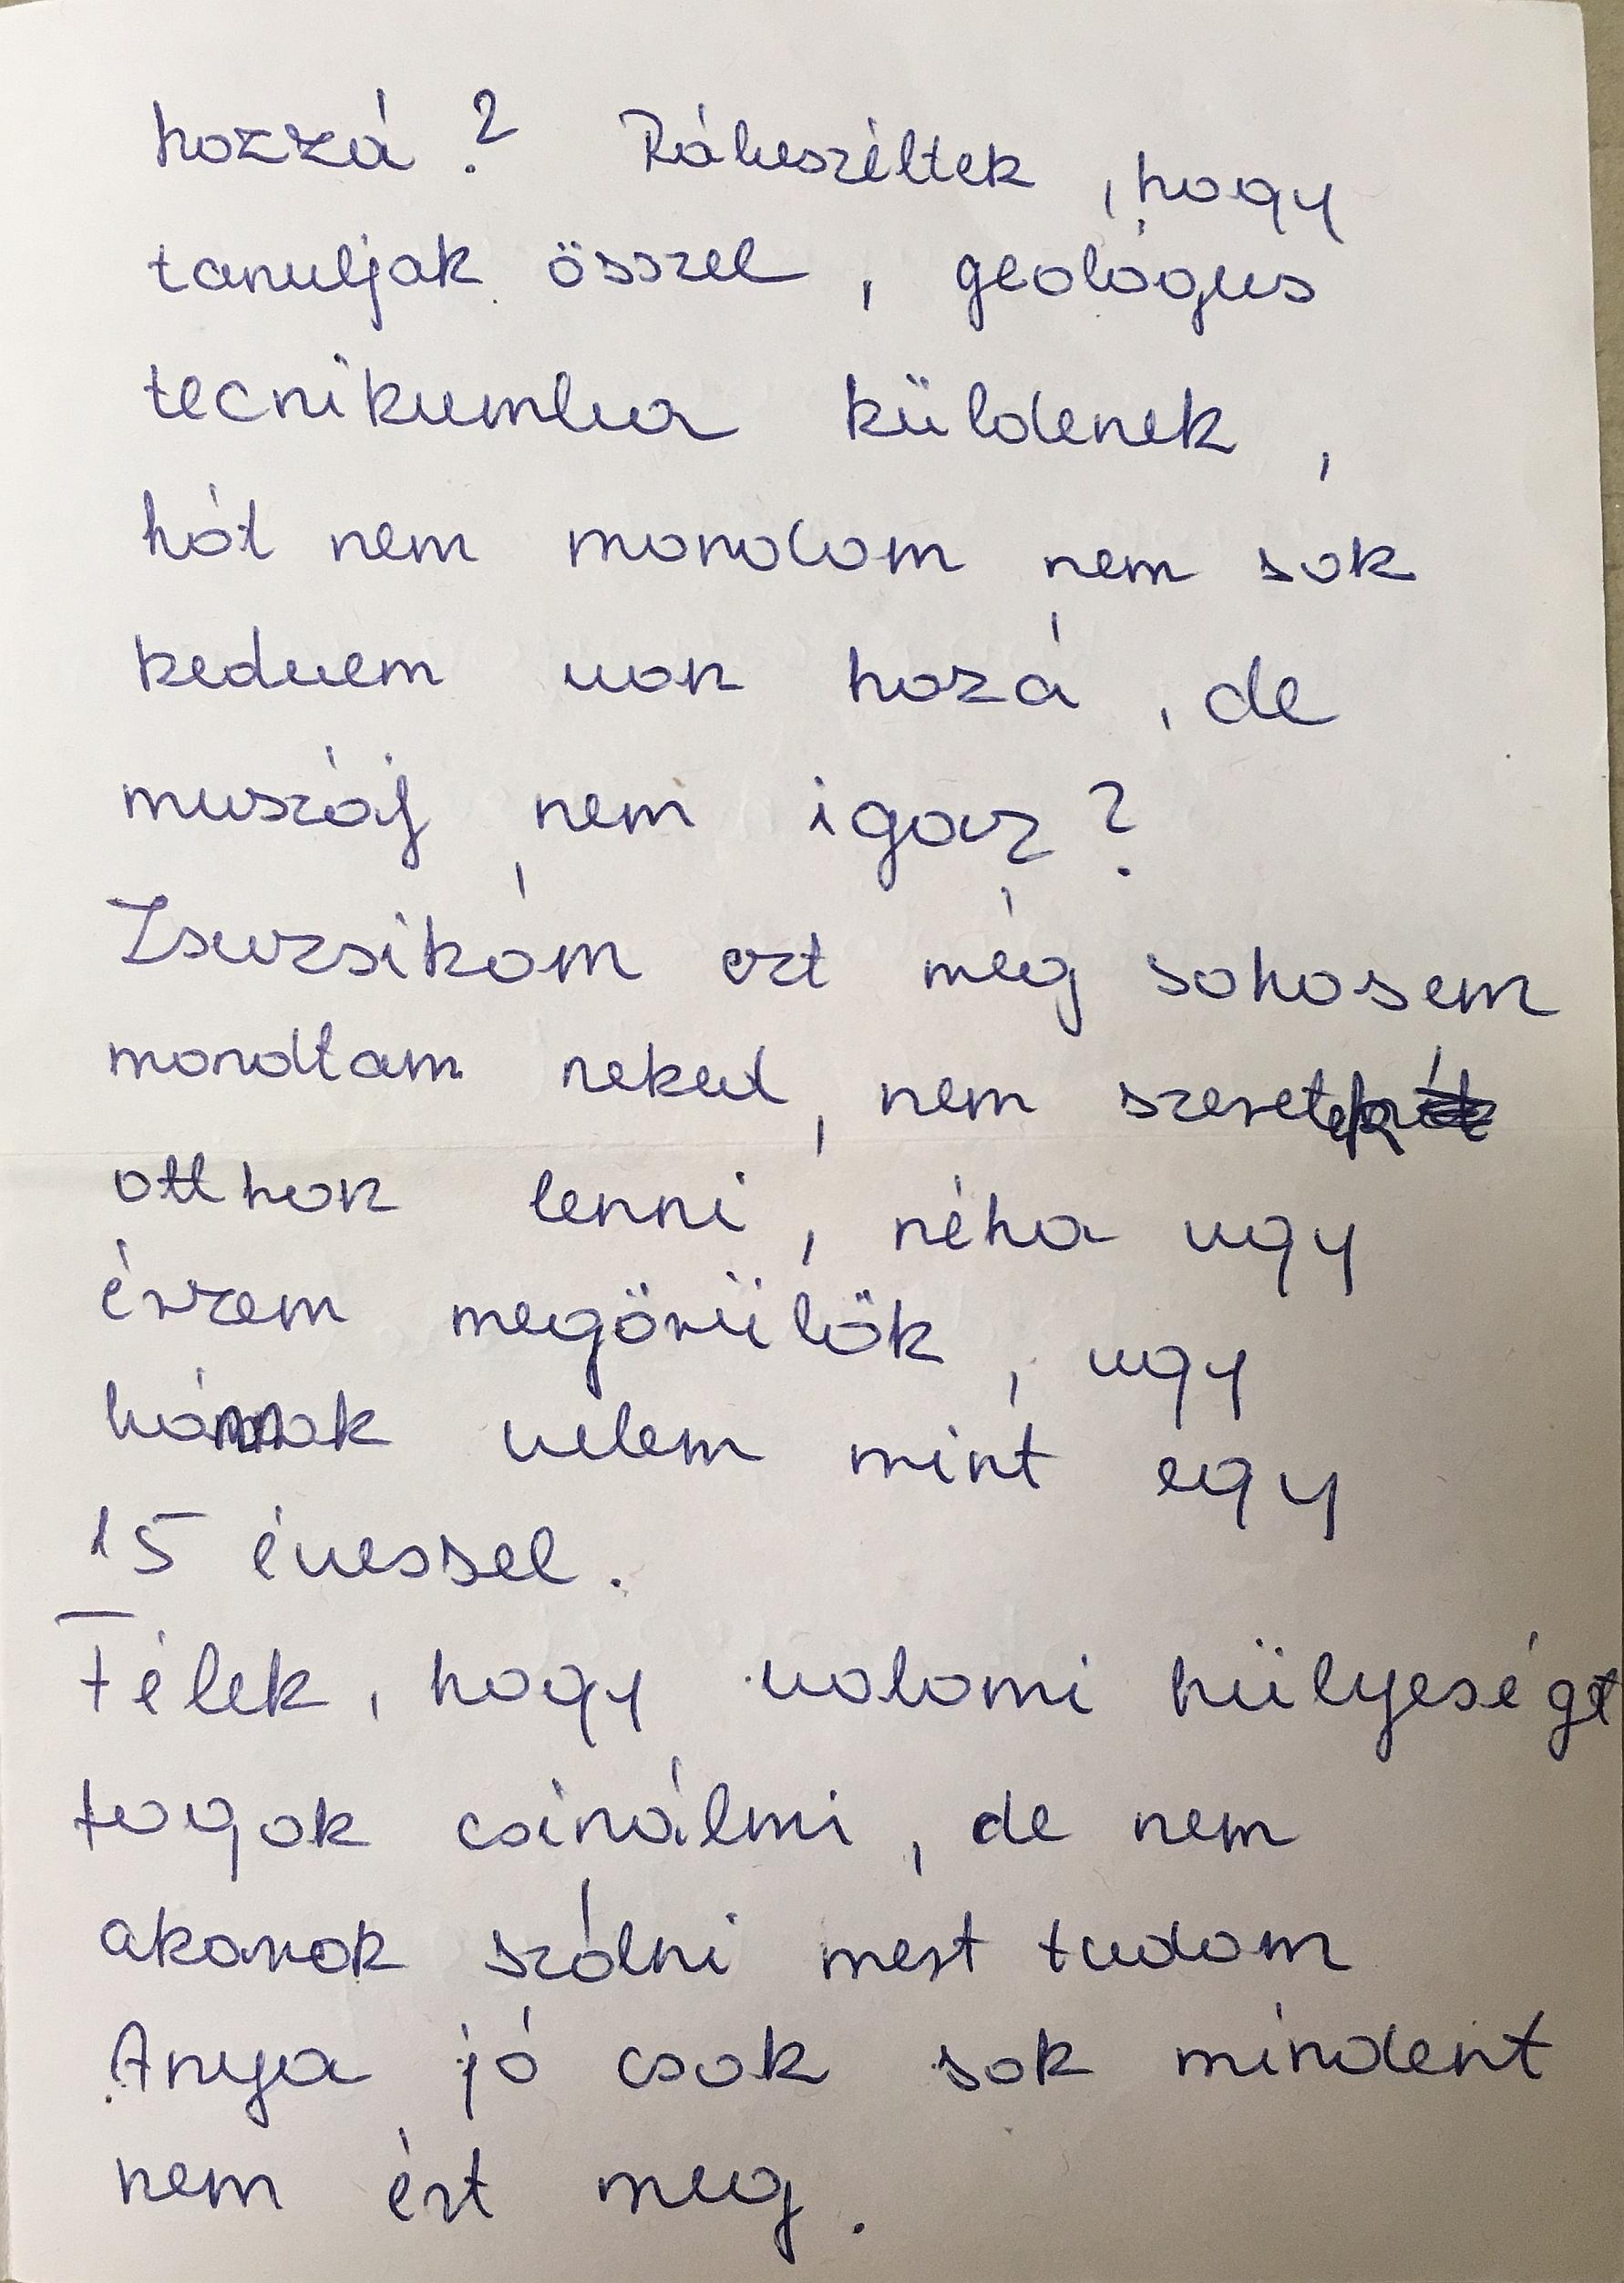 hozzá? Rábeszéltek, hogy
tanuljak ősszel, geológus
tecnikumba küldenek,
hát nem mondom nem sok
kedvem van hozá, de
muszáj, nem igaz?
Zsuzsikám ezt még sohasem
mondtam neked, nem szeretek
otthon lenni, néha ugy
érzem megőrülök, ugy
bánnak velem mint egy
15 évessel.
Félek, hogy valami hülyeségt
fogok csinálmi, de nem
akarok szólni mert tudom
Anya jó csak sok mindent
nem ért meg.